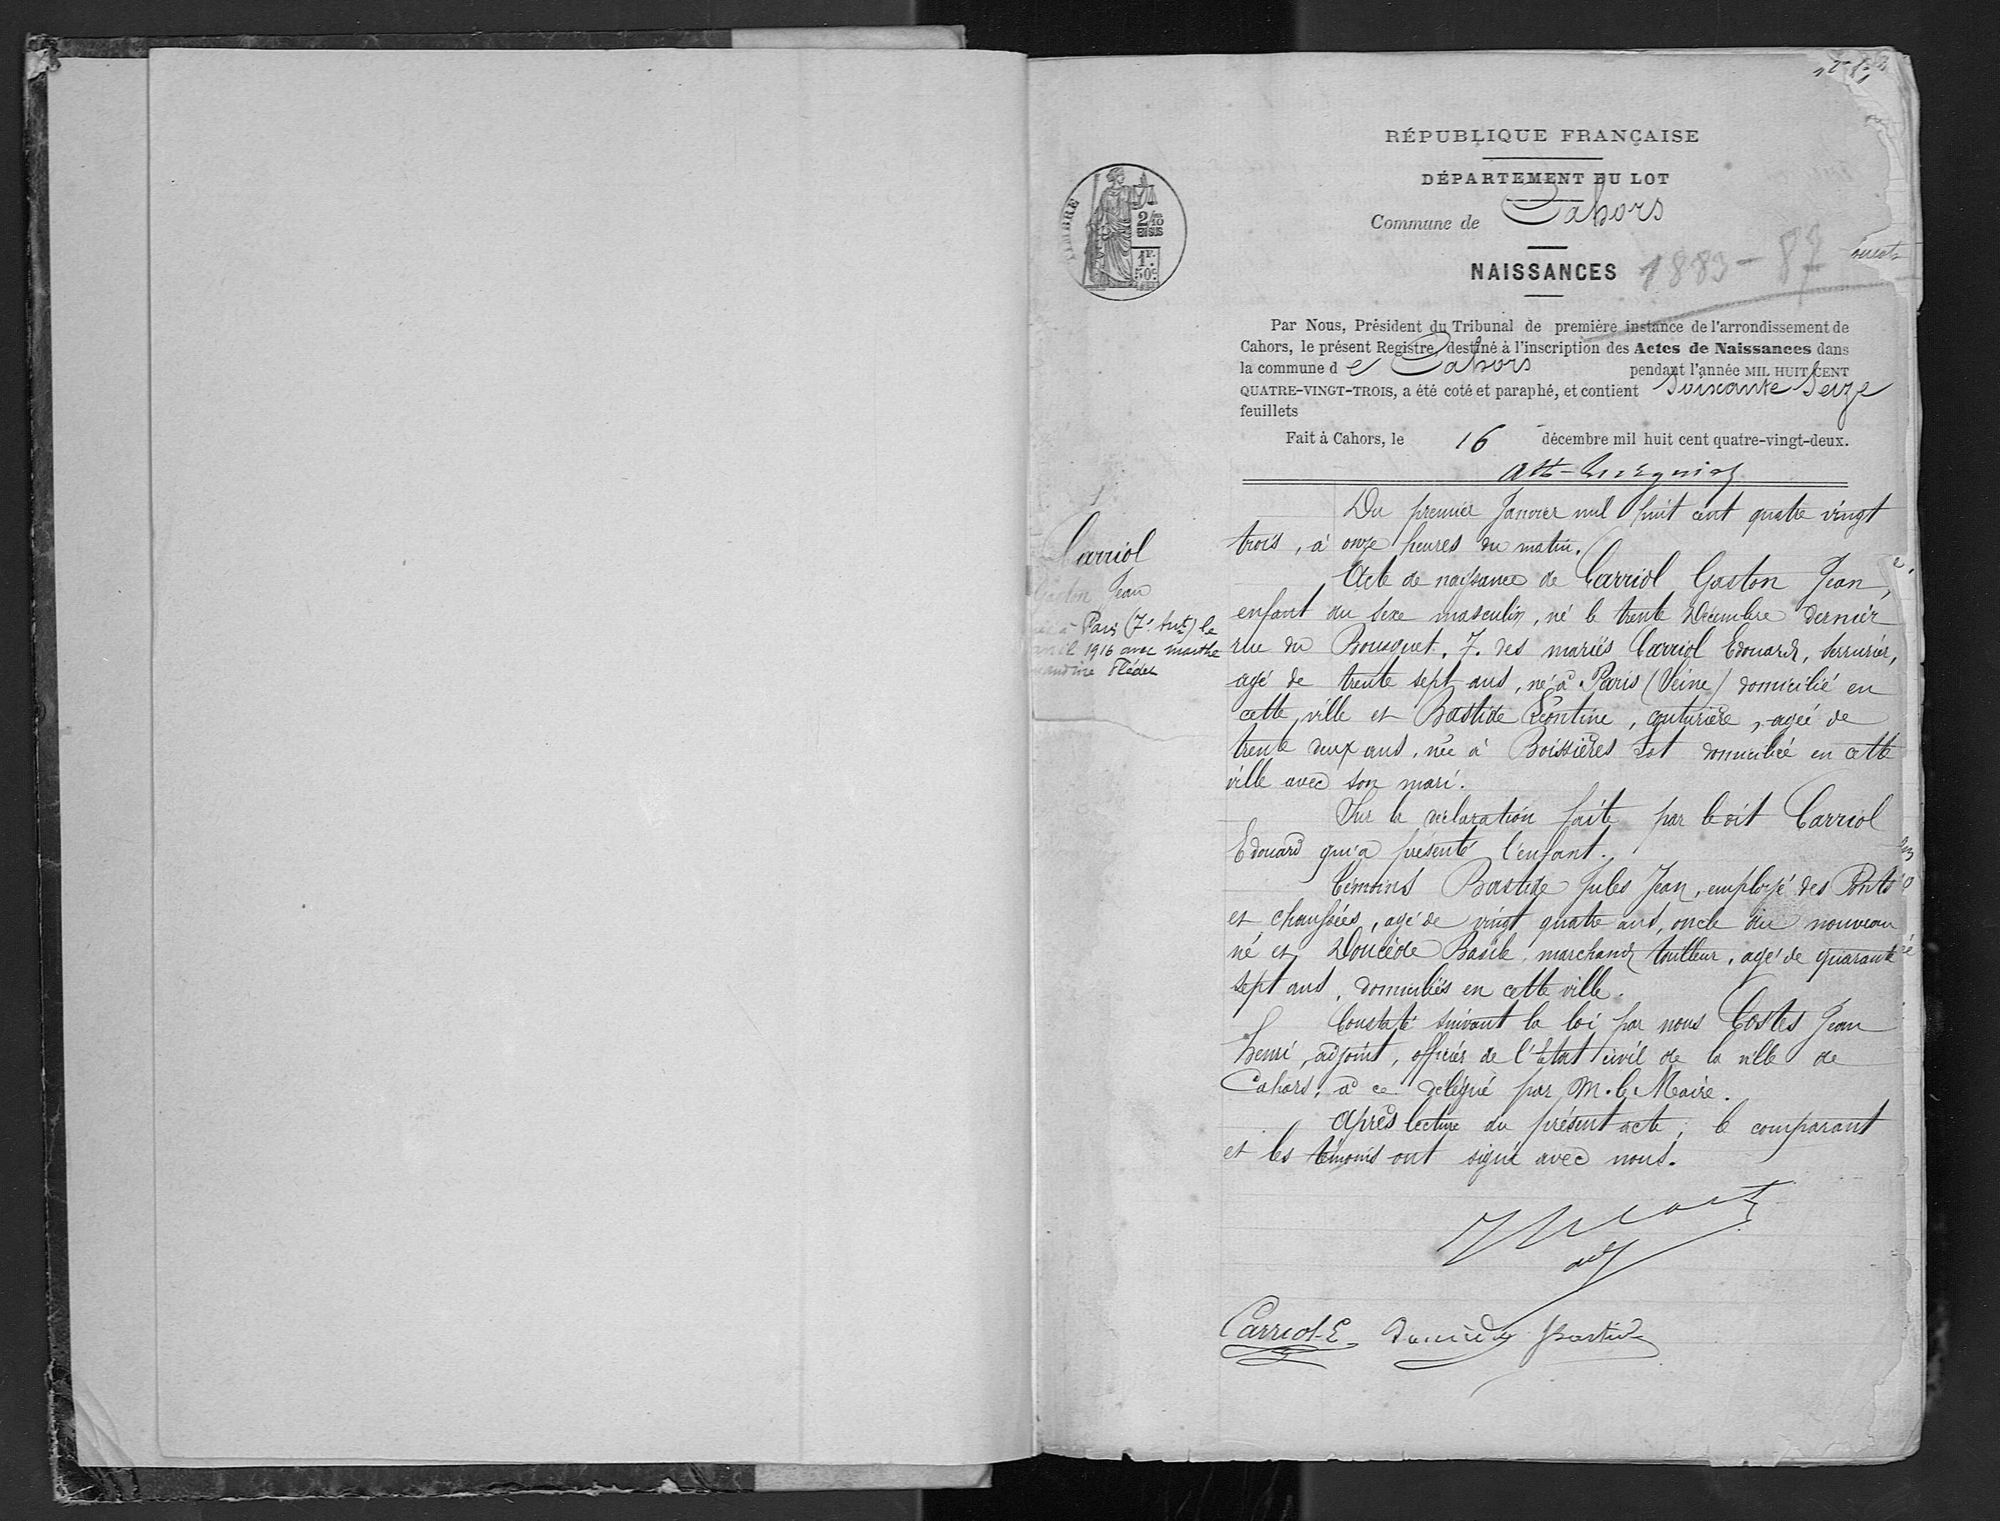 RÉPUBLIQUE FRANÇAISE
DÉPARTEMENT DU LOT
Commune de Cahors
NAISSANCES 1883-87
TIMBRE
2/10
EN SUS
1F.
50c
Par Nous, Président du Tribunal de première instance de l'arrondissement de
Cahors, le présent Registre, destiné à l'inscription des Actes de Naissances dans
la commune de Cahors pendant l'année MIL HUIT CENT
QUATRE-VINGT-TROIS, a été coté et paraphé, et contient Soixante Seize
feuillets
Fait à Cahors, le 16 décembre mil huit cent quatre-vingt-deux.
1
Carriol
Gaston Jean
à Paris (7e Art) le
avril 1916 avec Marthe
Du premier Janvier mil huit cent quatre vingt
trois, à onze heures du matin.
Acte de naissance de Carriol Gaston Jean,
enfant du sexe masculin, né le trente Décembre dernier
rue du Bousquet, 7. des mariés Carriol Edouard, serrurier,
agé de trente sept ans, né à Paris (Seine) domicilié en
cette ville et Bastide Léontine, couturière, agée de
trente deux ans, née à Boissières Lot domiciliée en cette
ville avec son mari.
Sur la déclaration faite par ledit Carriol
Edouard qui a présenté l'enfant.
Témoins Bastide Jules Jean, employé des Ponts
et chaussées, agé de vingt quatre ans, oncle du nouveau
né et Doucède Basile, marchand tailleur, agé de quarante
sept ans, domiciliés en cette ville.
Constaté suivant la loi par nous Costes Jean
Henri, adjoint, officier de l'Etat civil de la ville de
Cahors, à ce délégué par M. le Maire.
Après lecture du présent acte, le comparant
et les témoins ont signé avec nous.
Carriol E. Bastide